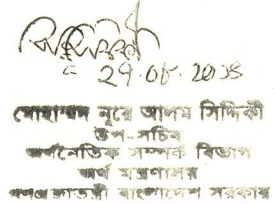 29.05.2018
মোহাম্মদ নূরে আলম সিদ্দিকী
উপ-সচিব
অর্থনৈতিক সম্পর্ক বিভাগ
অর্থ মন্ত্রণালয়
গণপ্রজাতন্ত্রী বাংলাদেশ সরকার